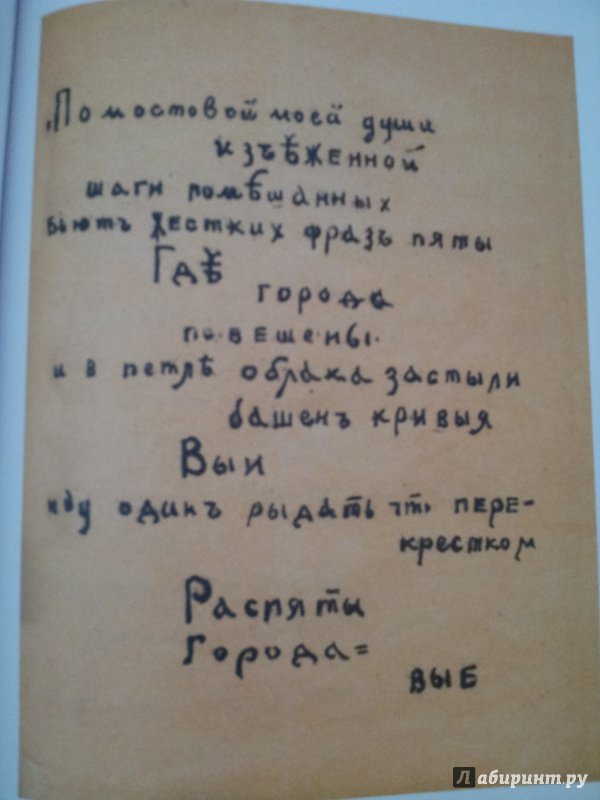 По мостовой моей души
изъѣженной
шаги помѣшанных
вьютъ жестких фразъ пяты
Гдѣ
города
повешены
и в петлѣ облака застыли
башенъ кривыя
Выи
иду одинъ рыдать что пере-
крестком
Распяты
города=
выЕ
Лабиринт.ру